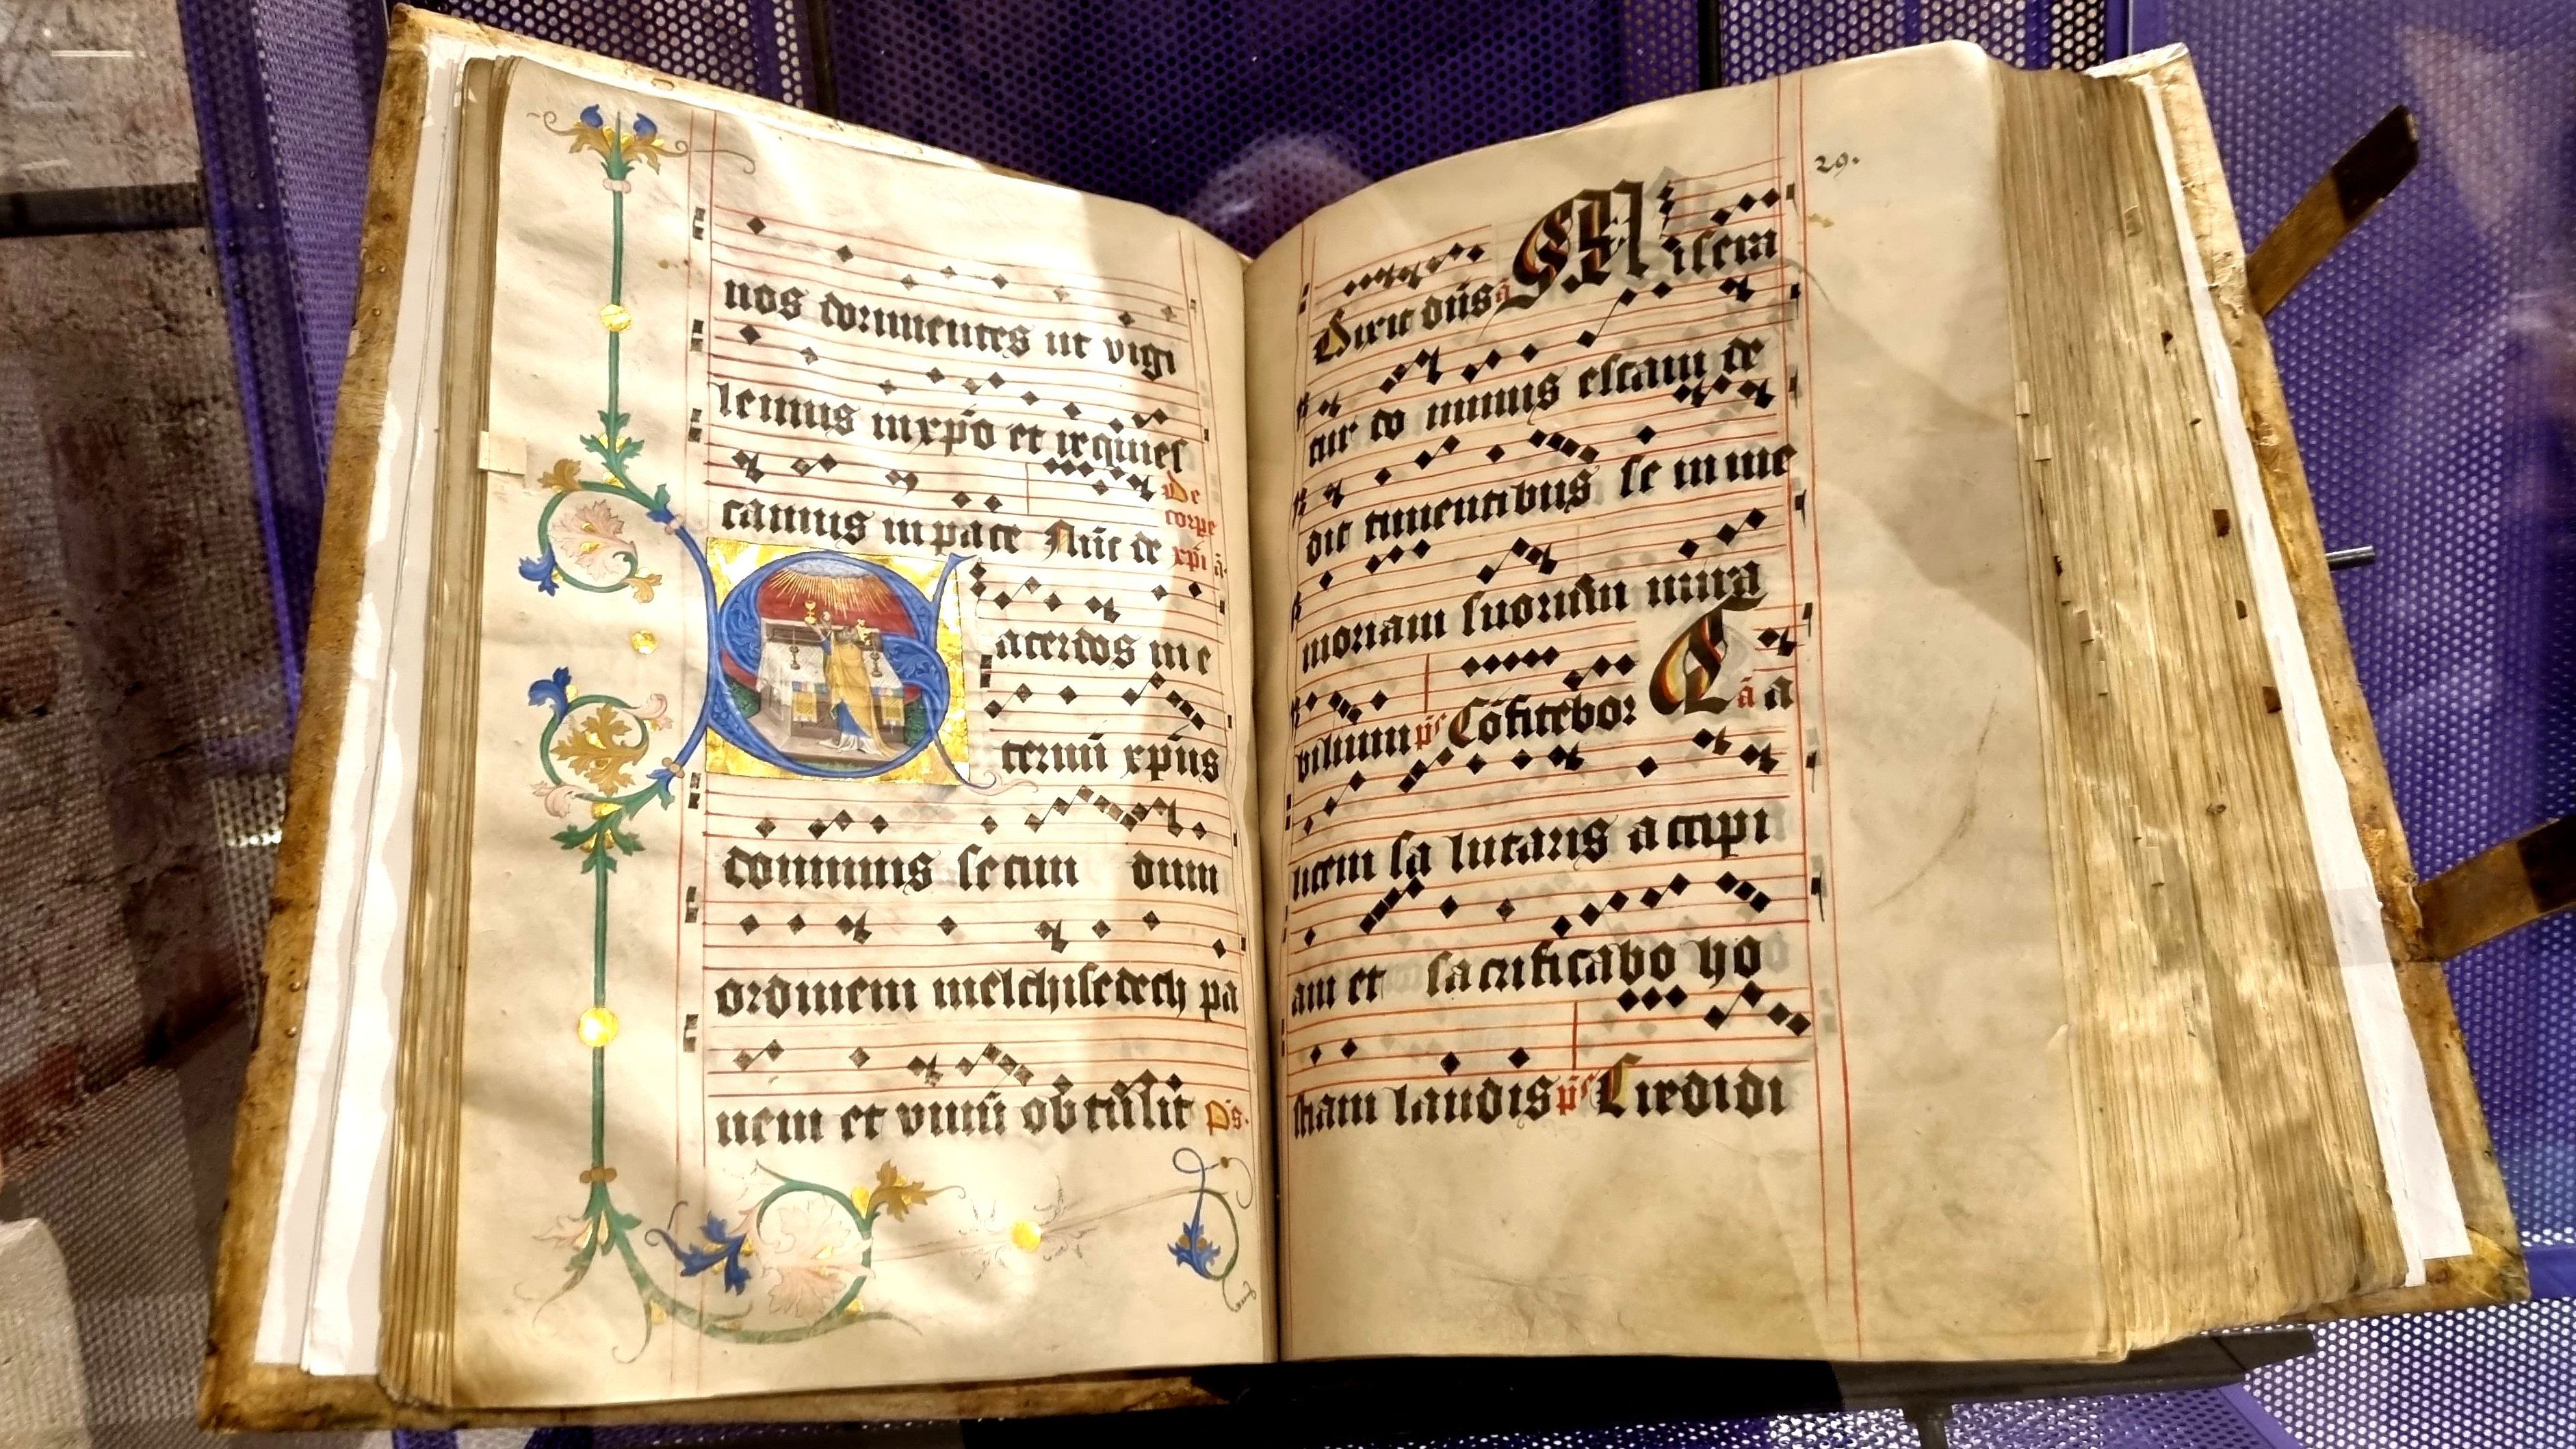 nos dormientes ut vigi
lemus in xp̄o et reqͥues
camus in pace Nūc de
De
corpe
xp̄i ā.
Sacerdos in e
ternū xp̄us
dominus secun dum
ordinem melchisedech pa
nem et vinū obtulit Ps.
29.
Dixit dn̄s ā Misera
tur do minus escam de
dit timentibus se in me
moriam suorum mira
bilium ps Cōfitebor Cā a
licem sa lutaris accipi
am et sacrificabo ho
stiam laudis ps Credidi